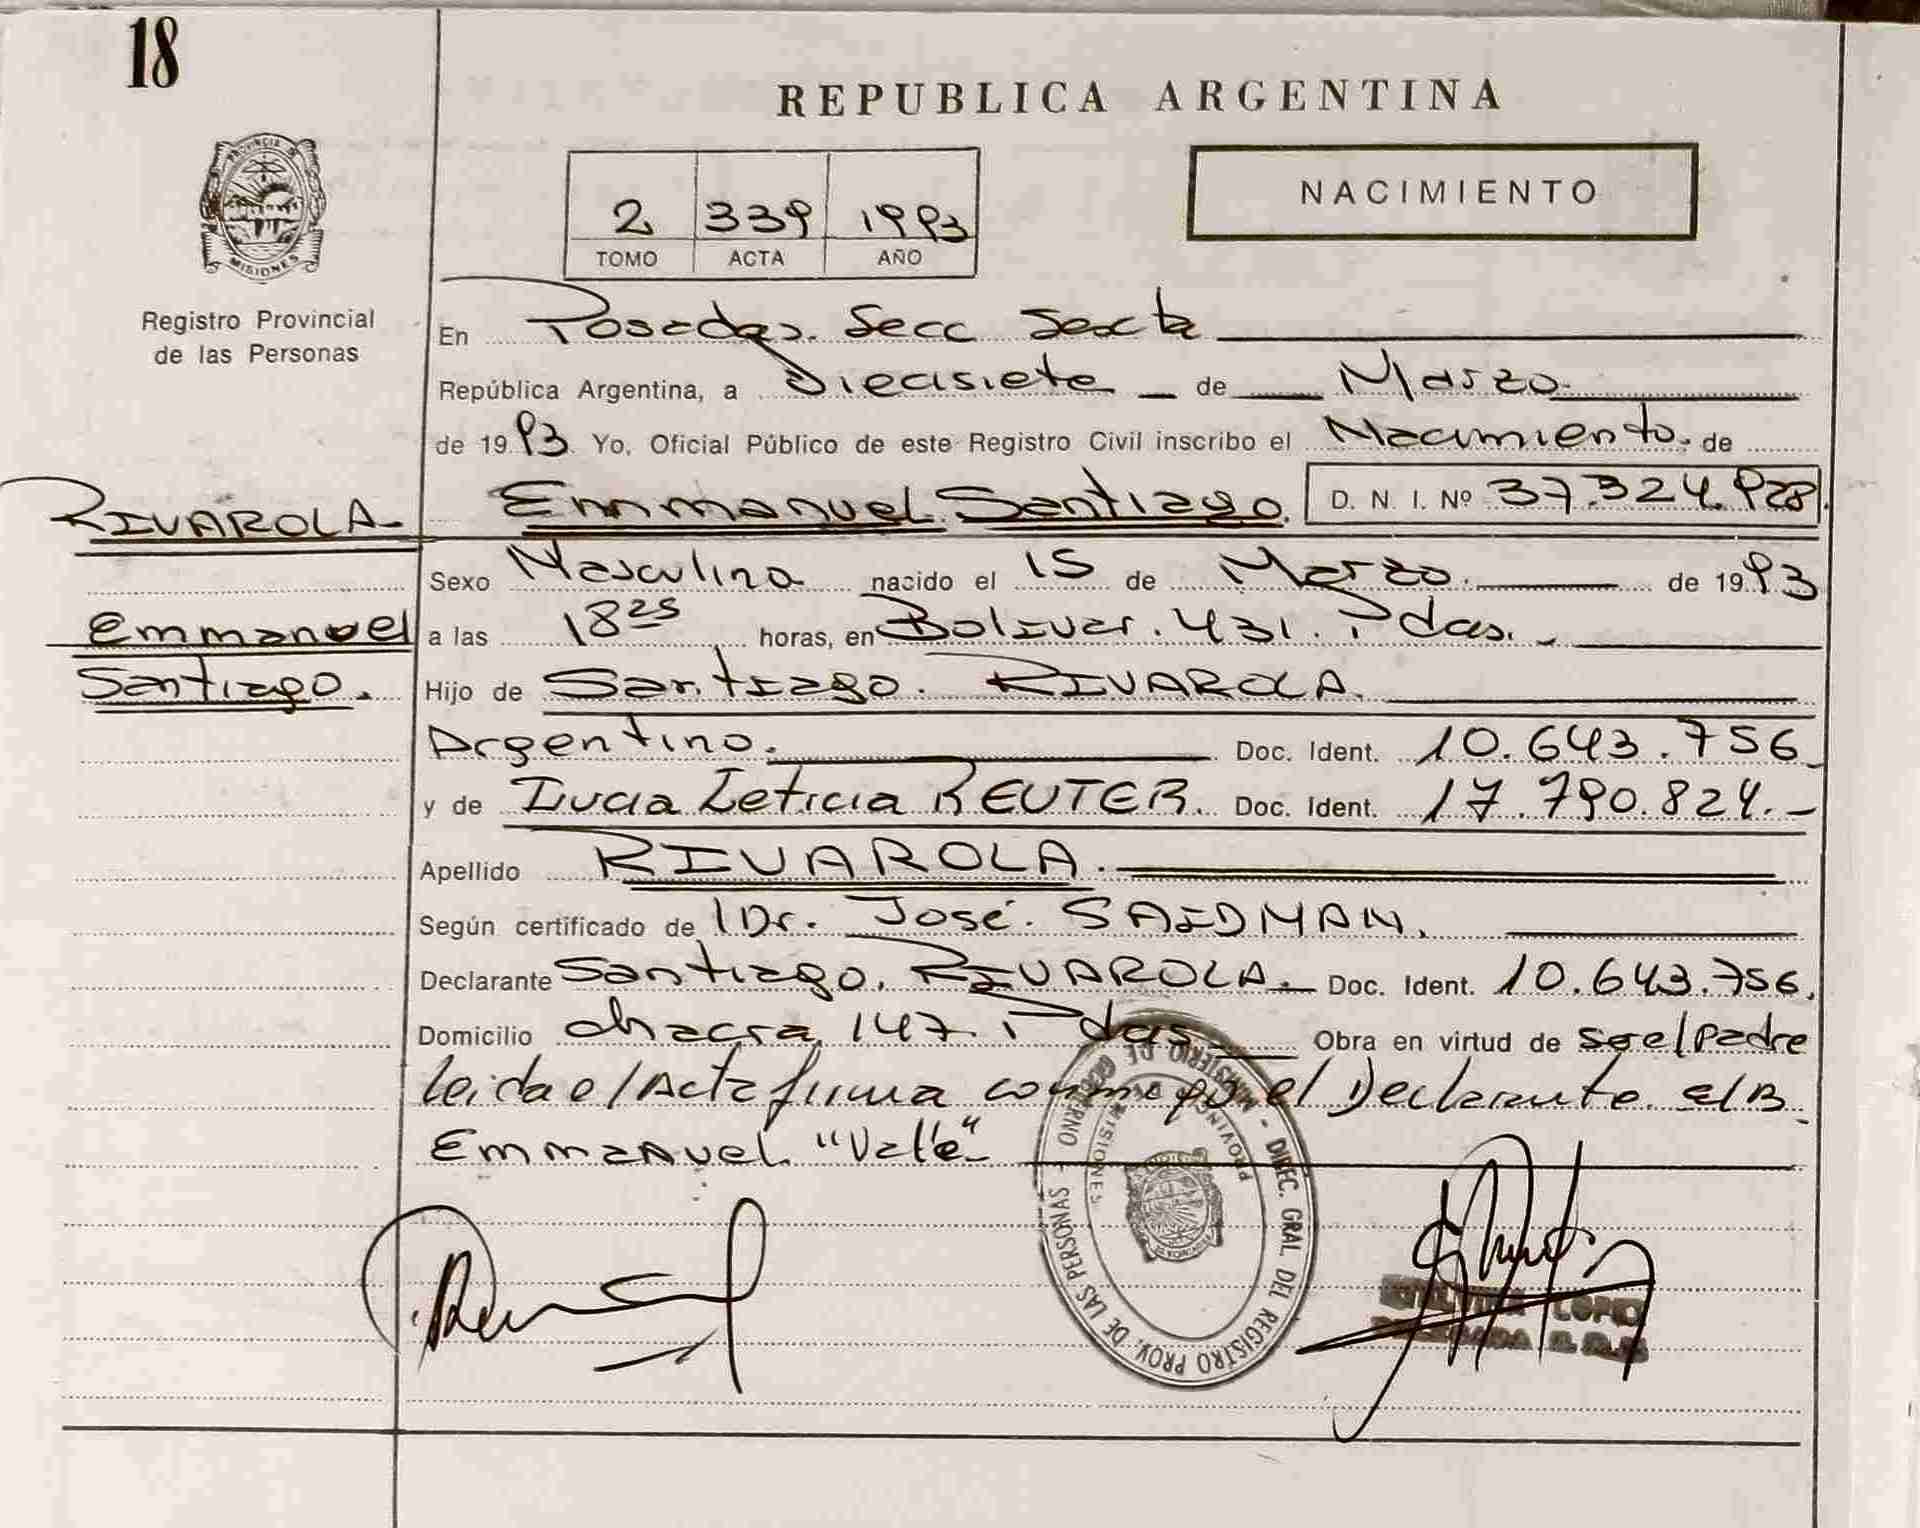 18
REPUBLICA ARGENTINA
NACIMIENTO
2 339 1993
TOMO ACTA AÑO
PROVINCIA DE
MISIONES
Registro Provincial
de las Personas
En Posadas. Secc Sexta
República Argentina, a Diecisiete de Marzo.
de 1993 Yo, Oficial Público de este Registro Civil inscribo el Nacimiento. de
RIVAROLA Emmanuel Santiago. D. N. I. Nº 37.324.928.
Sexo Masculino nacido el 15 de Marzo. de 1993
Emmanuel a las 18 25 horas, en Bolivar. 431. Pdas.
Santiago. Hijo de Santiago. RIVAROLA.
Argentino. Doc. Ident. 10.643.756
y de Lucia Leticia REUTER. Doc. Ident. 17.790.824.-
Apellido RIVAROLA.
Según certificado de Dr. José. SAIDMAN.
Declarante Santiago. RIVAROLA. Doc. Ident. 10.643.756.
Domicilio chacra 147. Pdas. Obra en virtud de ser el Padre
leida el Acta firma conmigo el Declarante. E/B
Emmanuel "Vale"
MINISTERIO DE GOBIERNO - DIREC. GRAL. DEL REGISTRO PROV. DE LAS PERSONAS
PROVINCIA DE MISIONES
LOPEZ